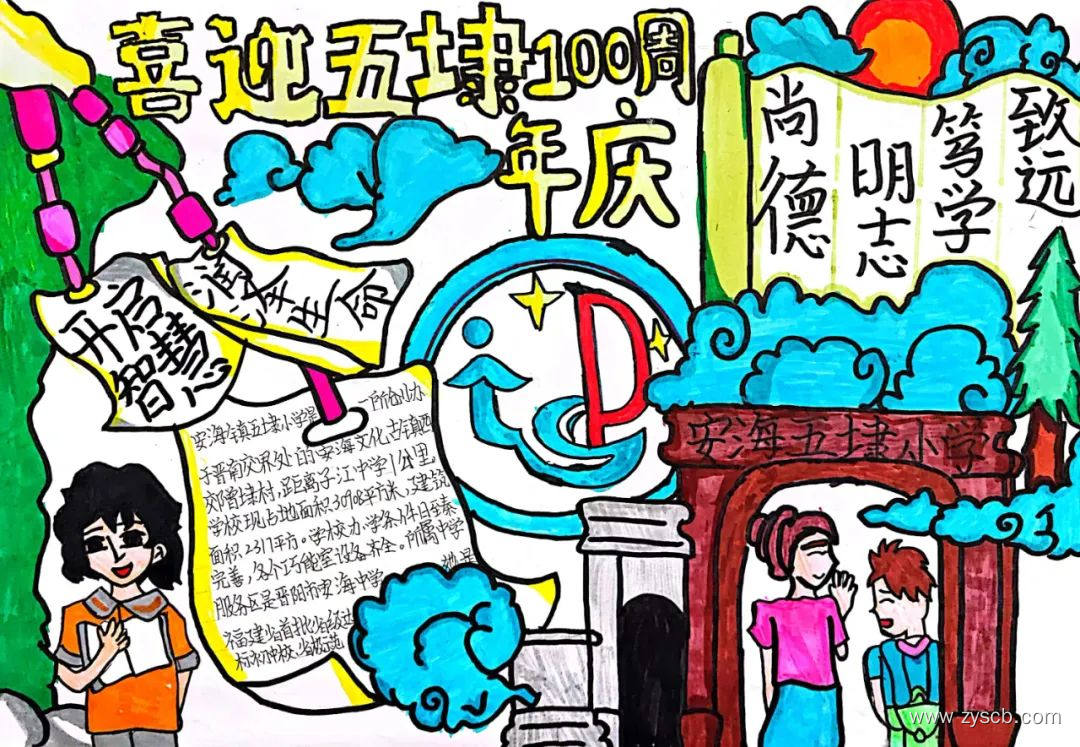 喜迎五埭100周
年庆
尚德
明志
笃学
致远
开启
智慧
生命
安海镇五埭小学是一所创办
于晋南交界处的安海文化古镇西
郊曾埭村,距离子江中学1公里,
学校现占地面积3098平方米,建筑
面积2317平方。学校办学条件日臻
完善,各个功能室设备齐全。所属中学
服务区是晋阳市安海中学
福建省首批省级达
标初中校、省级示范
安海五埭小学
www.zyscb.com